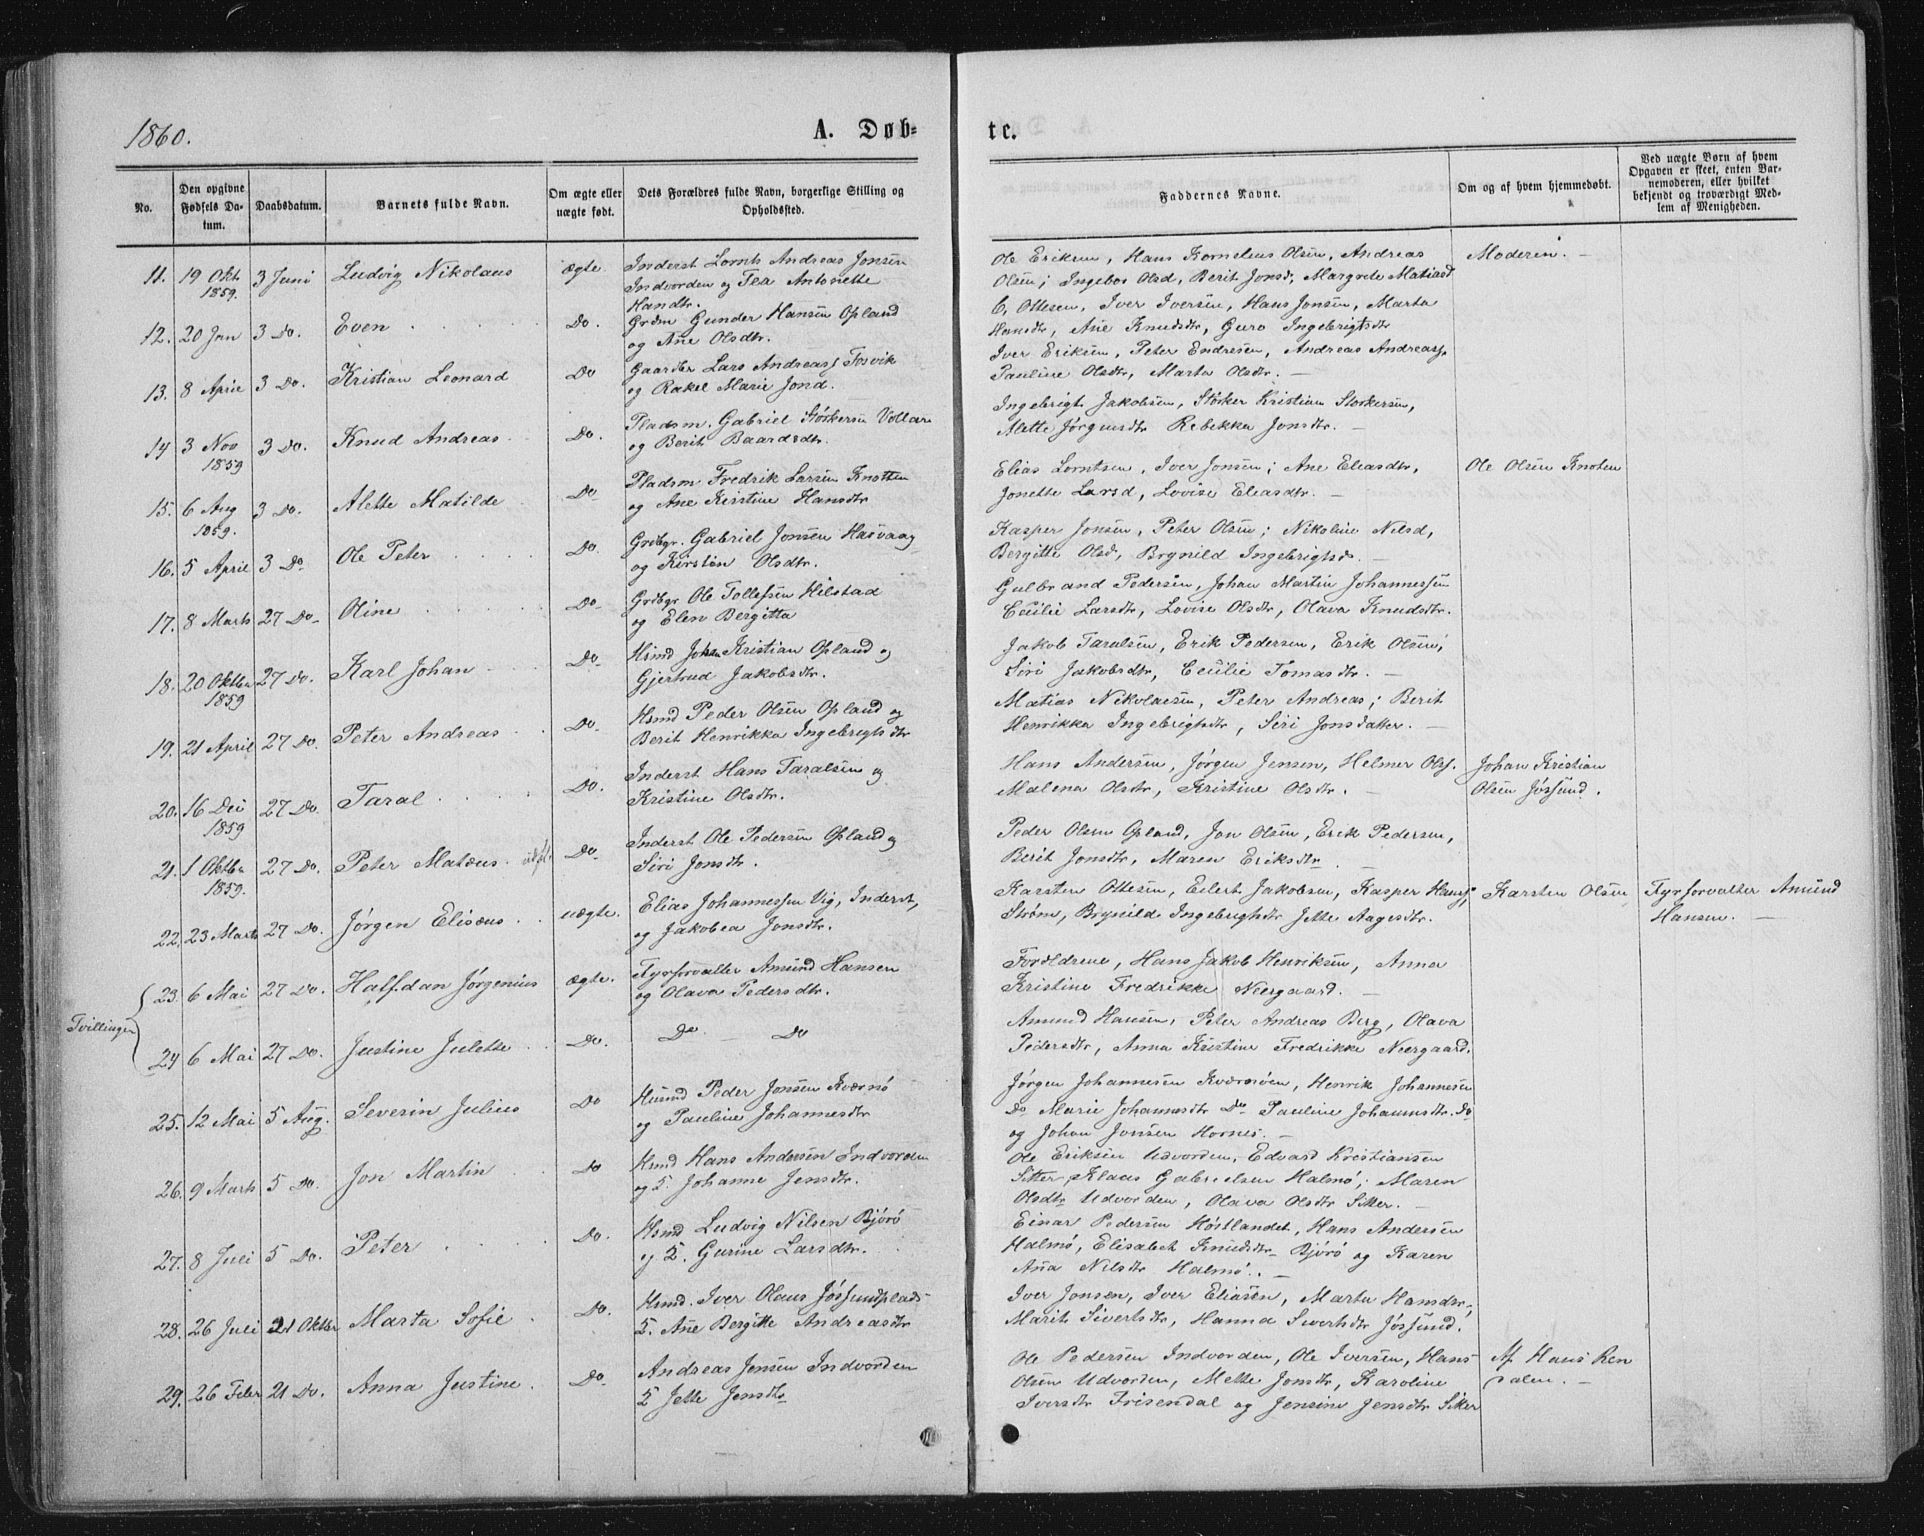 1860.
A. Døb-
te.
No.
Den opgivne Fødsels Datum.
Daabsdatum.
Barnets fulde Navn.
Om ægte eller uægte født.
Dets Forældres fulde Navn, borgerlige Stilling og Opholdssted.
Faddernes Navne.
Om og af hvem hjemmedøbt.
Ved uægte Børn af hvem Opgaven er skeet, enten Barnemoderen, eller hvilket bekjendt og troværdigt Medlem af Menigheden.
11. 19 Okt 1859. 3 Juni Ludvig Nikolaus ægte. Inderst Lornts Andreas Jonsen
Indvorden og Antonette
Hansdtr.
Ole Eriksen, Hans Kornelius Olsen, Andreas
Olsen; Ingebor Olsd, Berit Jonsd, Margrete Matiasd
Moderen. -
12. 20 Jan 3 Do. Even Do. Grdm Gunder Hansen Opland
og Ane Olsdtr.
C. Ottesen, Iver Iversen, Hans Jonsen, Marta
Hansdtr, Ane Knudsdtr, Guro Ingebrigtsdtr
13. 8 April 3 Do. Kristian Leonard Do Gaardbr Lars Andreass Fosvik
og Rakel Marie Jond.
Iver Eriksen, Peter Endresen, Andreas Andreass,
Pauline Olsdtr, Marta Olsdtr. -
14 3 Nov 1859 3 Do. Knud Andreas Do. Pladsm. Gabriel Störkersen Vollan
og Berit Baardsdtr.
Ingebrigt Jakobsen, Störker Kristian Störkersen,
Alette Jørgensdtr Rebekka Jonsdtr. -
15. 6 Aug 1859. 3 Do. Alette Matilde Do Pladsm Fredrik Larsen Knotten
og Ane Kristine Hansdtr
Elias Lorntsen, Iver Jonsen; Ane Eleasdtr,
Jonette Larsd, Lovise Eleasdtr. -
Ole Olsen Knoten
16. 5 April 3 Do Ole Peter Do. Grdbgr. Gabriel Jonsen Hasvaag
og Kirsten Olsdtr.
Kasper Jonsen, Peter Olsen; Nikoline Nilsd,
Bergitte Olsd, Brynild Ingebrigtsd. -
17. 8 Marts 27 Do. Oline Do. Grdbgr Ole Tollefsen Hilstad
og Elen Bergitta
Gulbrand Pedersen, Johan Martin Johannessen
Cecilie Larsdtr, Lovise Olsdtr, Olava Knudsdtr.
18. 20 Oktbr 1859 27 Do. Karl Johan Do. Hsmd Johan Kristian Opland og
Gjertrud Jakobsdtr.
Jakob Taralsen, Erik Pedersen, Erik Olsen;
Siri Jakobsdtr, Cecilie Tomasdtr. -
19. 21 April 27 Do. Peter Andreas Do. Hsmd Peder Olsen Opland og
Berit Henrikka Ingebrigtsdtr
Matias Nikolaesen, Peter Andreas; Berit
Henrikka Ingebrigtsdtr, Siri Jonsdatter. -
20. 16 Dei 1859 27 Do Taral Do. Inderst Hans Taralsen og
Kristine Olsdtr.
Hans Andersen, Jørgen Jensen, Helmer Ols.
Malena Olsdtr, Kristine Olsdtr. -
Johan Kristian
Olsen Jøssund.
21. 1 Oktbr 1859. 27 Do. Peter Matæus. Do. Inderst Ole Pedersen Opland og
Siri Jonsdtr.
Peder Olsen Opland, Jon Olsen, Erik Pedersen,
Berit Jonsdtr, Maren Eriksdtr.
22. 23 Marts 27 Do. Jørgen Elisæus uægte. Elias Johannessen Vig, Inderst,
og Jakobea Jonsdtr.
Karsten Ottesen, Eilert Jakobsen, Kasper Hanss,
Strøm, Brynild Ingebrigtsdtr Jette Aagesdtr.
Karsten Olsen
Fyrforvalter Amund
Hansen. -
Tvillinger
23. 6 Mai 27 Do. Halfdan Jørgenius ægte. Fyrforvalter Amund Hansen
og Olava Pedersdtr.
Forældrene, Hans Jakob Henriksen, Anna
Kristine Fredrikke Neergaard. -
24 6 Mai 27 Do. Justine Julette Do. Do - Do
Amund Hansen, Peter Andreas Berg, Olava
Pedersdtr, Anna Kristine Fredrikke Neergaard.
25. 12 Mai 5 Aug. Severin Julius Do Husmd Peder Jonsen Kværnø
og Pauline Johannesdtr
Jørgen Johannesen Kværnøen, Henrik Johannesen
Do Marie Johannesdtr Do Pauline Johannesdtr. Do
og Johan Jonsen Hornes. -
26. 9 Marts 5 Do. Jon Martin Do Hsmd Hans Andersen Indvorden
og H. Johanne Jensdtr.
Ole Eriksen Udvorden, Edvard Kristiansen
Sitter, Klaus Gabrielsen Halmø, Maren
Olsdtr Udvorden, Olava Olsdtr Sitter. -
27. 8 Juli 5 Do. Peter Do. Hsmd Ludvig Nilsen Bjørø
og H. Gurine Larsdtr.
Einar Pedersen Høstlandet, Hans Andersen
Halmø, Elisabet Knudsdtr Bjørø og Karen
Ana Nilsdtr Halmø. -
28. 26 Juli 21 Oktbr Marta Sofie Do. Hsmd. Iver Olaus Jøssundplads
H. Ane Bergitte Andreasdtr
Iver Jonsen, Iver Eliasen, Marta Hansdtr,
Marit Sivertsdtr, Hanna Sivertsdtr Jøssund.
29. 26 Feber 21 Do. Anna Justine Do. Andreas Jensen Indvorden
H Jette Jensdtr
Ole Pedersen Indvorden, Ole Iversen, Hans
Olsen Udvorden, Mette Jonsdtr, Karoline
Iversdtr Frisendal og Jensine Jensdtr Sitter
Af Hans Ren
dalen. -